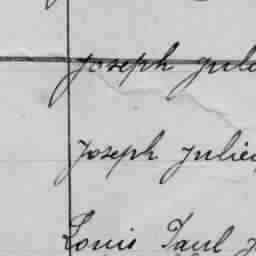 Joseph Jule
Joseph Julien
Louis Paul J